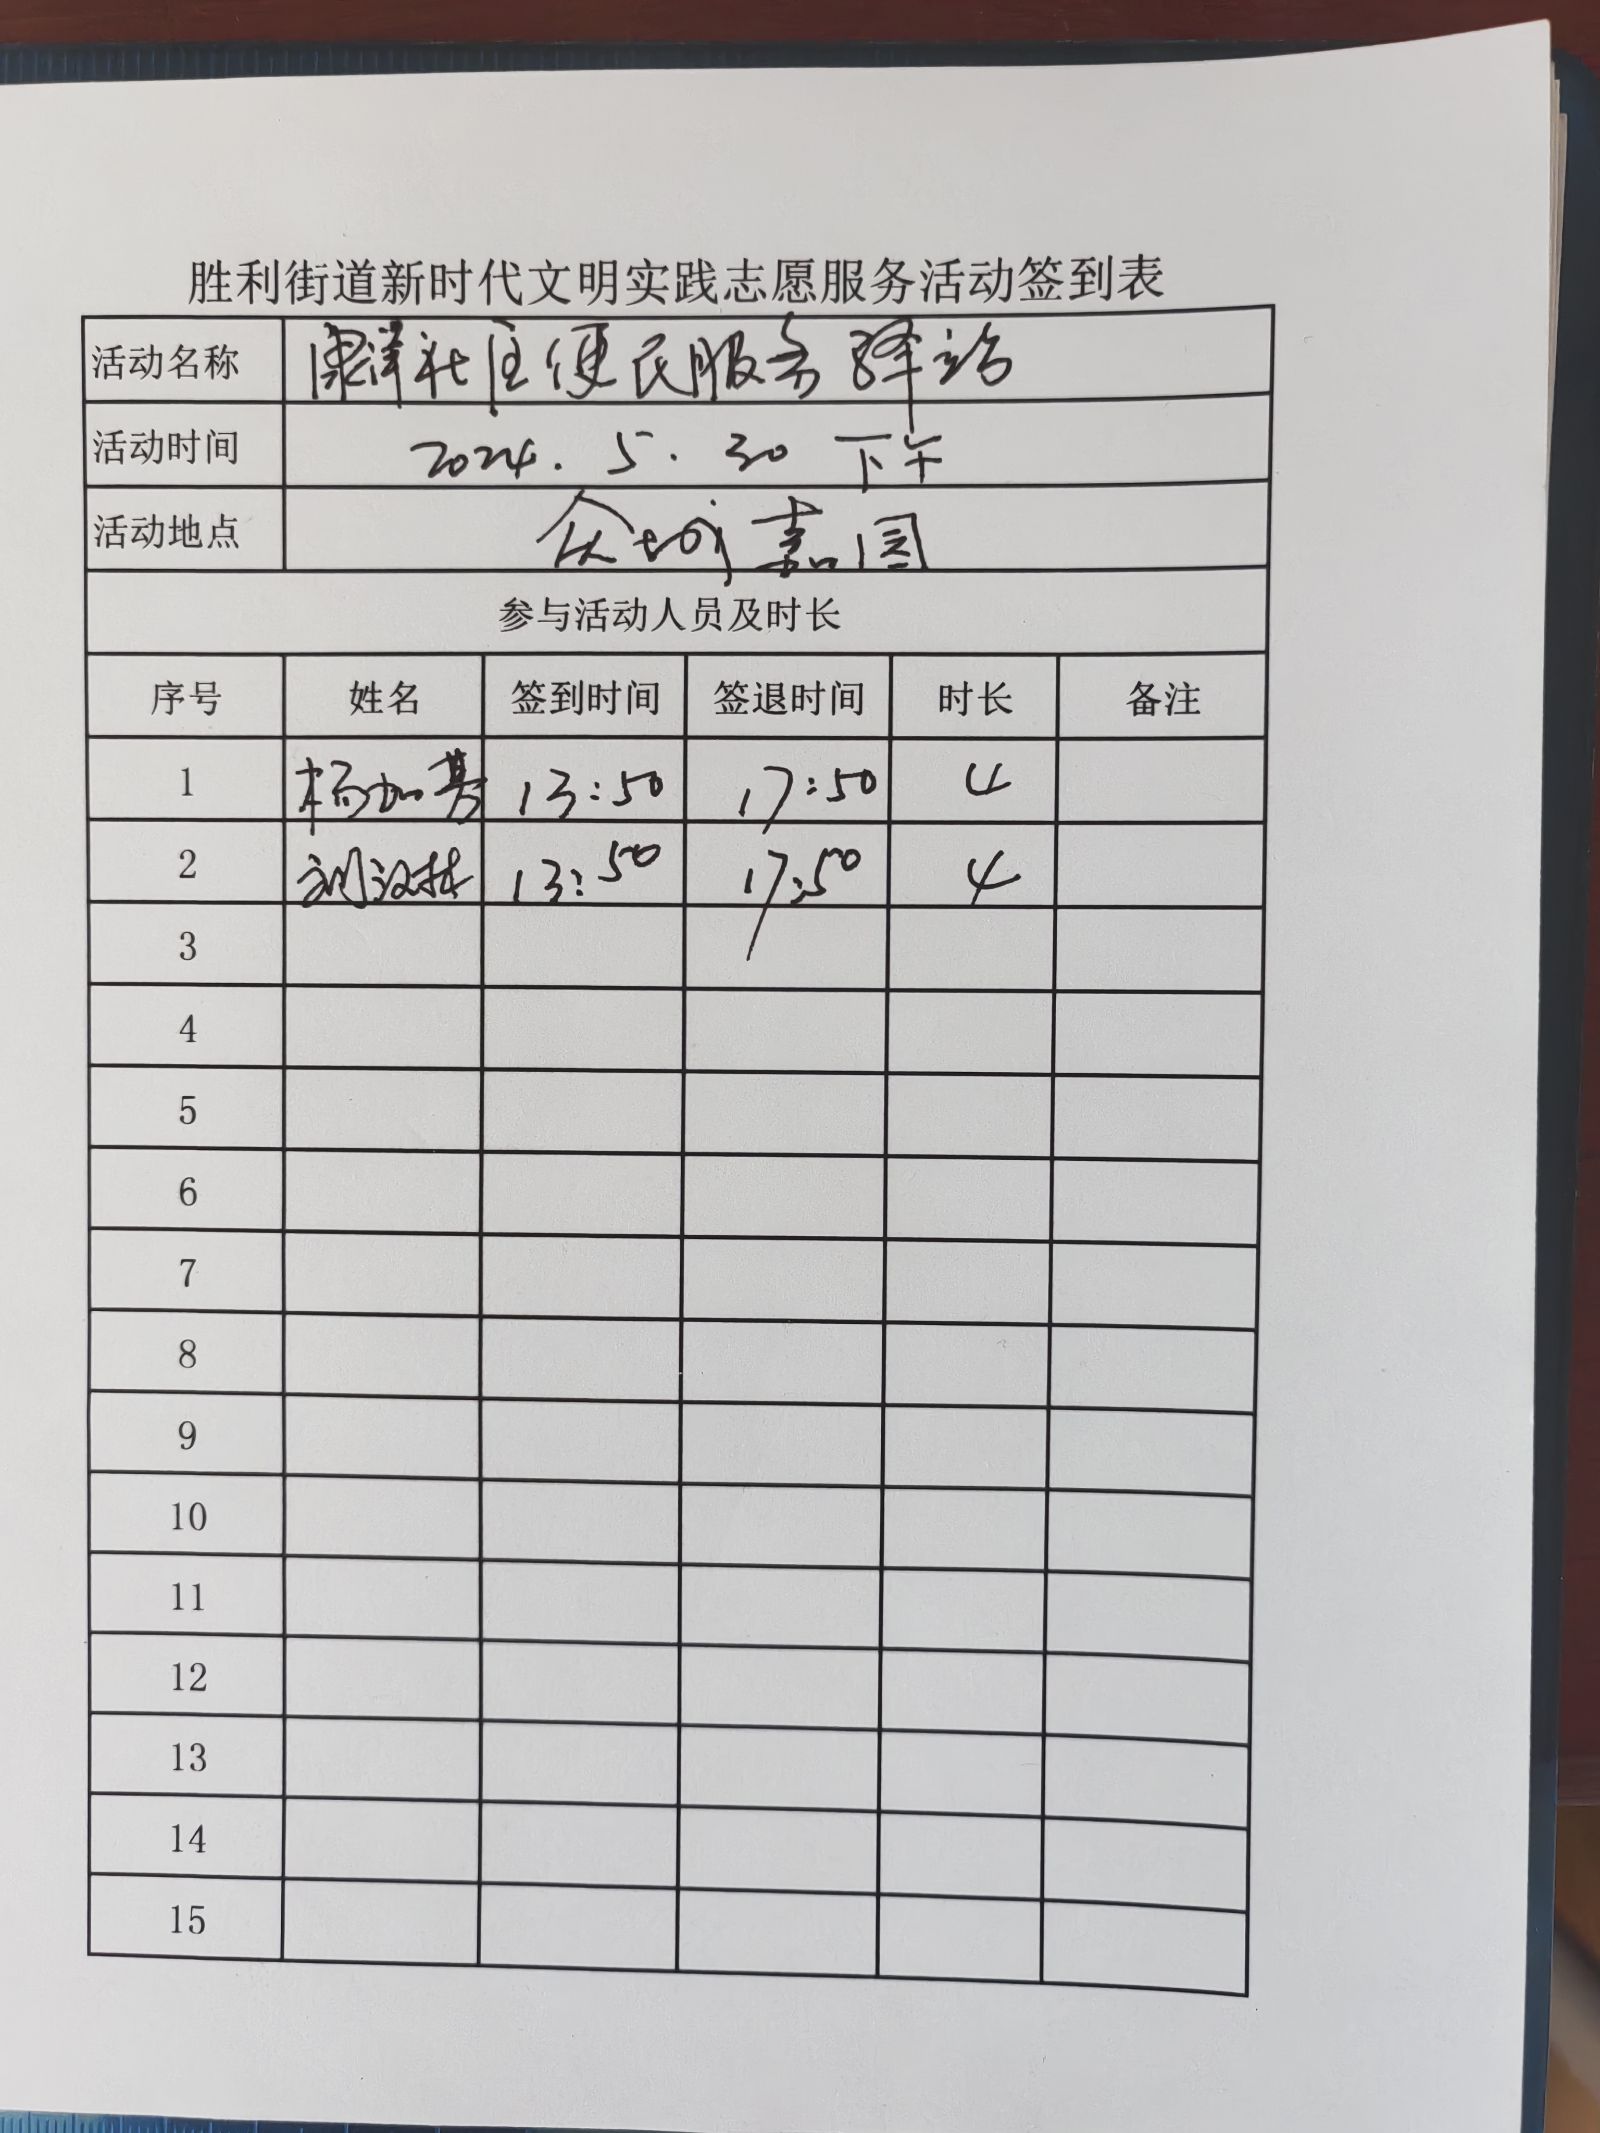 胜利街道新时代文明实践志愿服务活动签到表
活动名称 康洋社区便民服务驿站
活动时间 2024.5.30 下午
活动地点 众城嘉园
参与活动人员及时长
序号 姓名 签到时间 签退时间 时长 备注
1 杨加 13:50 17:50 4
2 刘汉林 13:50 17:50 4
3
4
5
6
7
8
9
10
11
12
13
14
15